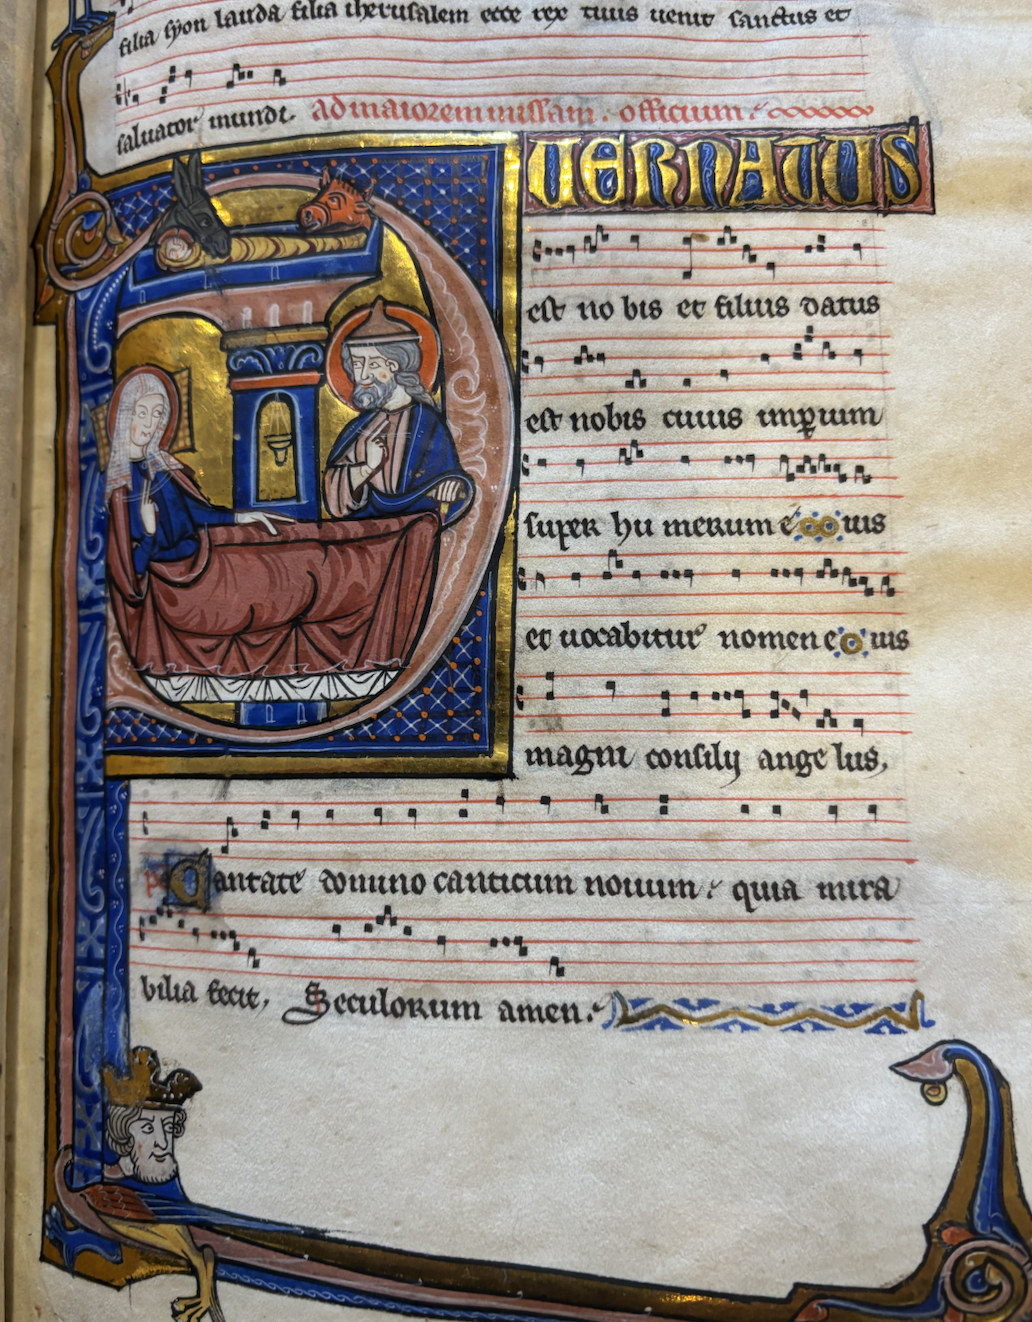 filia syon lauda filia iherusalem ecce rex tuus uenit sanctus et
saluator mundi. ad maiorem missam. officium.
PUERNATUS
est no bis et filius datus
est nobis cuius imꝑium
super hu merum e ius
et uocabitur nomen e ius
magni consilij ange lus,
Ps Cantate domino canticum nouum. quia mira
bilia fecit, Seculorum amen.